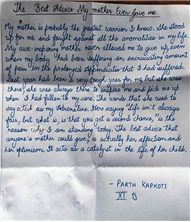 The Best Advice My mother Ever Gave me.
My mother is probably the greatest warrior I know. She stood
up for me and fought against all the abnormalities in my life.
My awe-inspiring mother never allowed me to give up, even
when my body had been suffering an excruciating amount
of pain in the prolonged appendicitis that I had suffered.
Last year had been a very tough year for me, but she was
there, she was always there to inspire me and pick me up
when I had fallen to my core. The words that she used to
say acted as my Adrenaline. Her saying "Life isn't always
fair, but what is, is that you get a second chance," is the
reason why I am standing today. The best advice that
anyone's mother could give is actually her affection and
her optimism. It acts as a catalyst in the life of her child.
- PARTH KAPKOTI
XI B